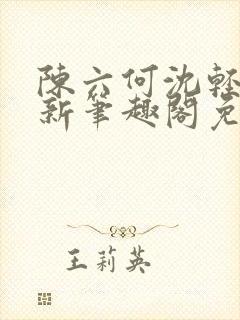 陳六何沈輕
新筆趣閣免
王莉英